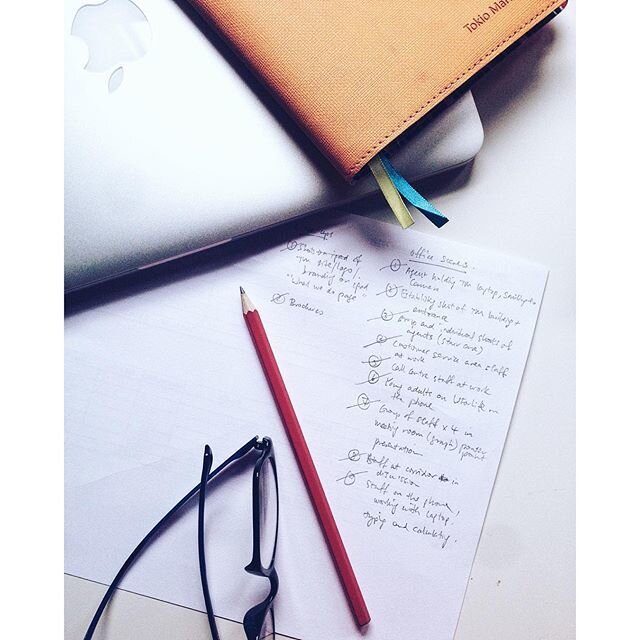 Tokio Mar
① Shots on ipad of
TM site/logo/
branding on ipad
"What we do page"
② Brochures
Office Scenes.
① Agent holding TM laptop, smiling to
camera
② Establishing shot of TM building +
entrance
③ Group and individual shots of
agents (stair case)
④ Customer service area staff
⑤ at work
Call centre staff at work
⑥ Young adults on
the phone
⑦ Group of staff x 4 in
meeting room (graph) power
point
presentation
⑧ Staff at corridor in
discussion
⑨ Staff on the phone,
working with laptop.
typing and calculating.